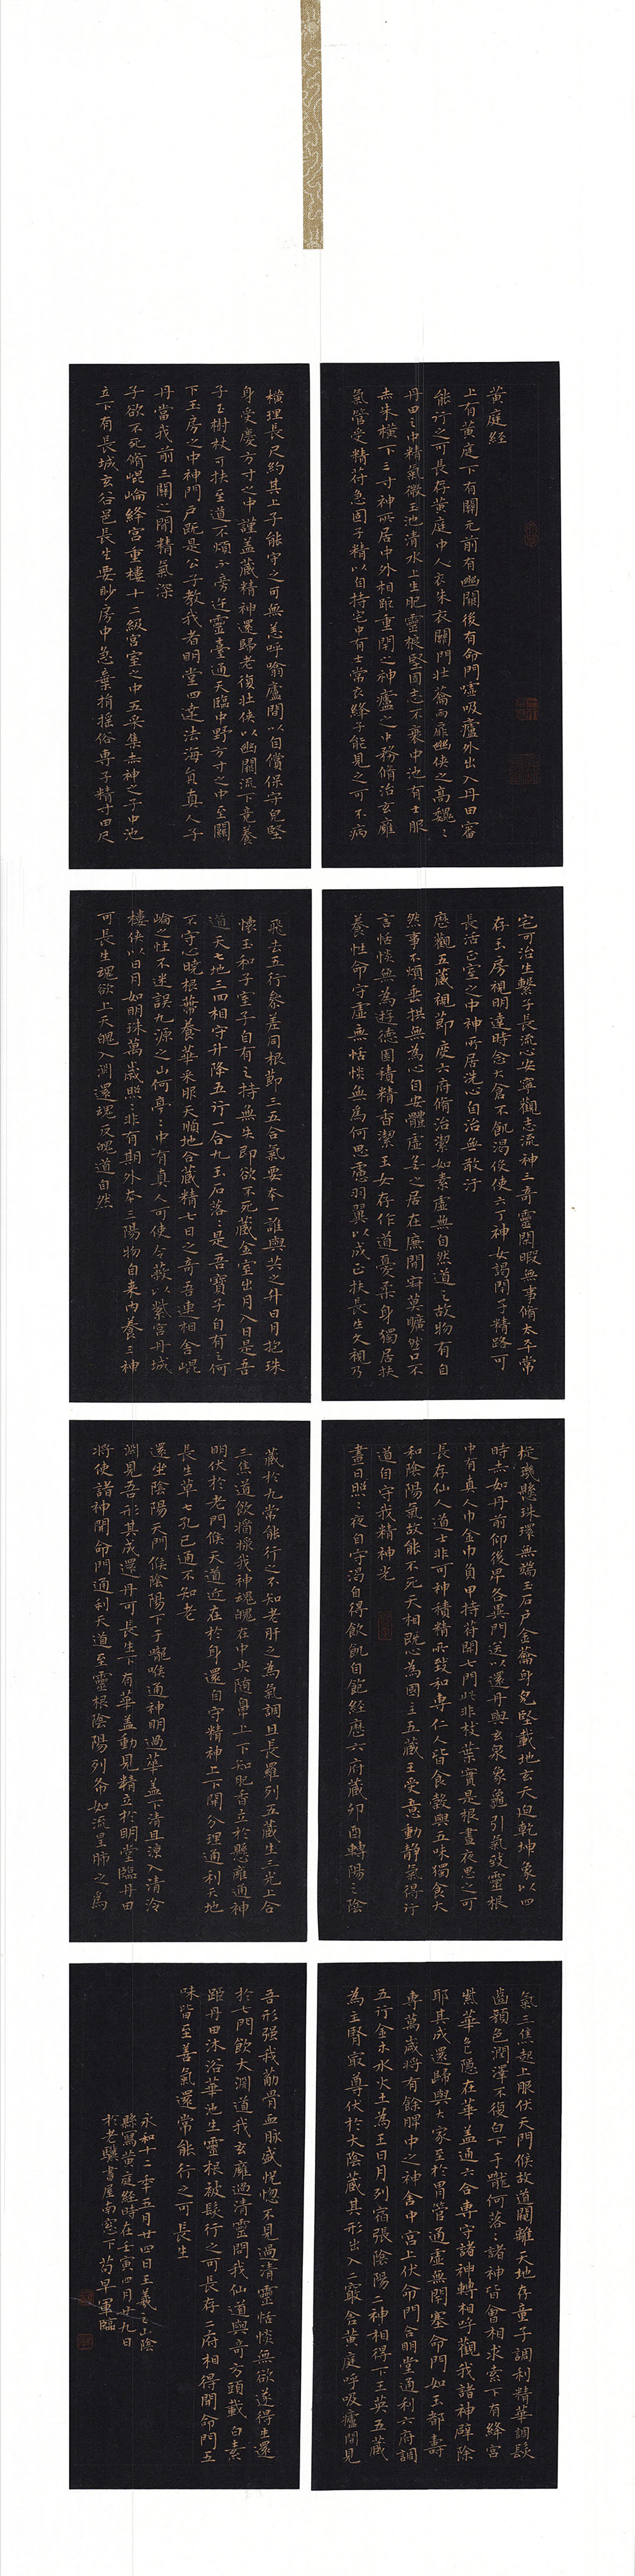 黃庭經
上有黃庭下有關元前有幽關後有命門噓吸廬外出入丹田審
能行之可長存黃庭中人衣朱衣關門壯蘥兩扉幽俠之高巍〻
丹田之中精氣微玉池清水上生肥靈根堅固志不衰中池有士服
赤朱橫下三寸神所居中外相距重閉之神廬之中務脩治玄廱
氣管受精符急固子精以自持宅中有士常衣絳子能見之可不病
橫理長尺約其上子能守之可無恙呼噏廬間以自償保守兒堅
身受慶方寸之中謹蓋藏精神還歸老復壯俠以幽關流下竟養
子玉樹杖可扶至道不煩不旁迕靈臺通天臨中野方寸之中至關
下玉房之中神門戶既是公子教我者明堂四達法海員真人子
丹當我前三關之間精氣深
子欲不死脩崐崘絳宮重樓十二級宮室之中五采集赤神之子中池
立下有長城玄谷邑長生要眇房中急棄捐搖俗專子精寸田尺
宅可治生繫子長流心安寧觀志流神三奇靈閑暇無事脩太平常
存玉房視明達時念大倉不飢渴役使六丁神女謁閉子精路可
長活正室之中神所居洗心自治無敢汙
歷觀五藏視節度六府脩治潔如素虛無自然道之故物有自
然事不煩垂拱無為心自安體虛無之居在廉間寂莫曠然口不
言恬惔無為遊德園積精香潔玉女存作道憂柔身獨居扶
養性命守虛無恬惔無為何思慮羽翼以成正扶長生久視乃
飛去五行參差同根節三五合氣要本一誰與共之升日月抱珠
懷玉和子室子自有之持無失即欲不死藏金室出月入日是吾
道天七地三回相守升降五行一合九玉石落〻是吾寶子自有之何
不守心曉根蒂養華采服天順地合藏精七日之奇吾連相舍崐
崘之性不迷誤九源之山何亭〻中有真人可使令蔽以紫宮丹城
樓俠以日月如明珠萬歲照〻非有期外本三陽物自来內養三神
可長生魂欲上天魄入淵還魂反魄道自然
琁璣懸珠環無端玉石戶金蘥身兒堅載地玄天迫乾坤象以四
時赤如丹前仰後卑各異門送以還丹與玄泉象龜引氣致靈根
中有真人巾金巾負甲持符開七門此非枝葉實是根晝夜思之可
長存仙人道士非可神積精所致和專仁人皆食穀與五味獨食大
和陰陽氣故能不死天相既心為國主五藏王受意動靜氣得行
道自守我精神光
晝日照〻夜自守渴自得飲飢自飽經歷六府藏卯酉轉陽之陰
藏於九常能行之不知老肝之為氣調且長羅列五藏生三光上合
三焦道飲醬漿我神魂魄在中央隨鼻上下知肥香立於懸雍通神
明伏於老門候天道近在於身還自守精神上下開分理通利天地
長生草七孔已通不知老
還坐陰陽天門候陰陽下于嚨喉通神明過華蓋下清且涼入清泠
淵見吾形其成還丹可長生下有華蓋動見精立於明堂臨丹田
將使諸神開命門通利天道至靈根陰陽列布如流星肺之為
氣三焦起上服伏天門候故道闚離天地存童子調利精華調髮
齒顏色潤澤不復白下于嚨何落〻諸神皆會相求索下有絳宮
紫華色隱在華蓋通六合專守諸神轉相呼觀我諸神辟除
耶其成還歸與大家至於胃管通虛無閉塞命門如玉都壽
專萬歲將有餘脾中之神舍中宮上伏命門合明堂通利六府調
五行金木水火土為王日月列宿張陰陽二神相得下玉英五藏
為主腎最尊伏於大陰藏其形出入二竅舍黃庭呼吸廬間見
吾形强我筋骨血脉盛恍惚不見過清靈恬惔無欲遂得生還
於七門飲大淵道我玄廱過清靈問我仙道與奇方頭載白素
距丹田沐浴華池生靈根被髮行之可長存二府相得開命門五
味皆至善氣還常能行之可長生
永和十二年五月廿四日王羲之山陰
縣寫黃庭經時在壬寅四月廿九日
於老驥書屋南窓下苟早軍臨